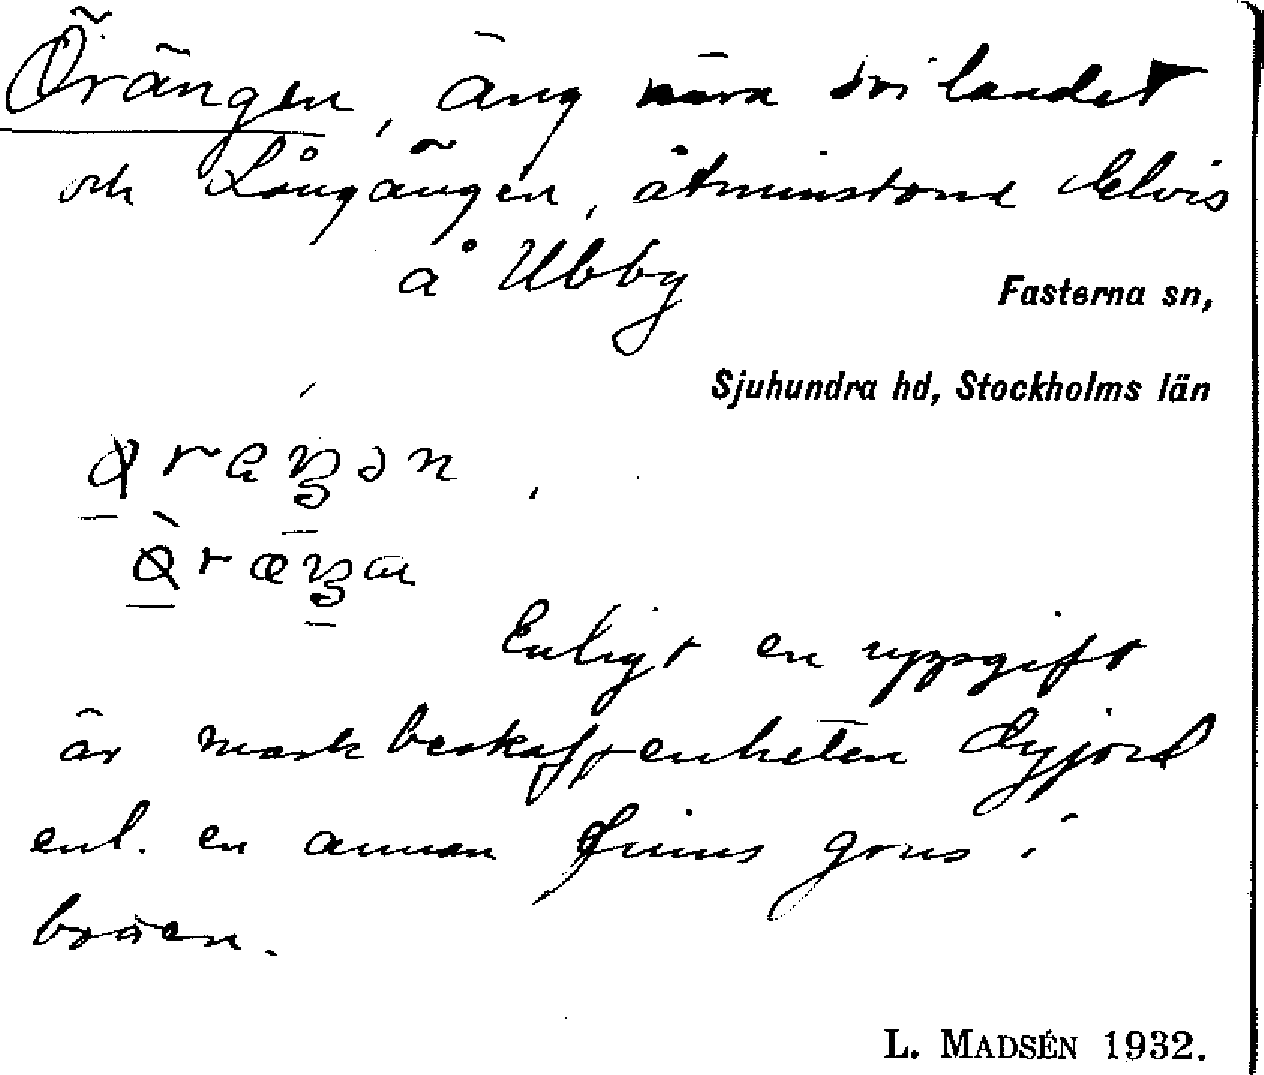 Örängen, äng nära Svilandet
och Långängen, åtminstone delvis
å Ubby
Fasterna sn,
Sjuhundra hd, Stockholms län
Enligt en uppgift
är markbeskaffenheten dyjord
enl. en annan finns grus i
L. MADSÉN 1932.